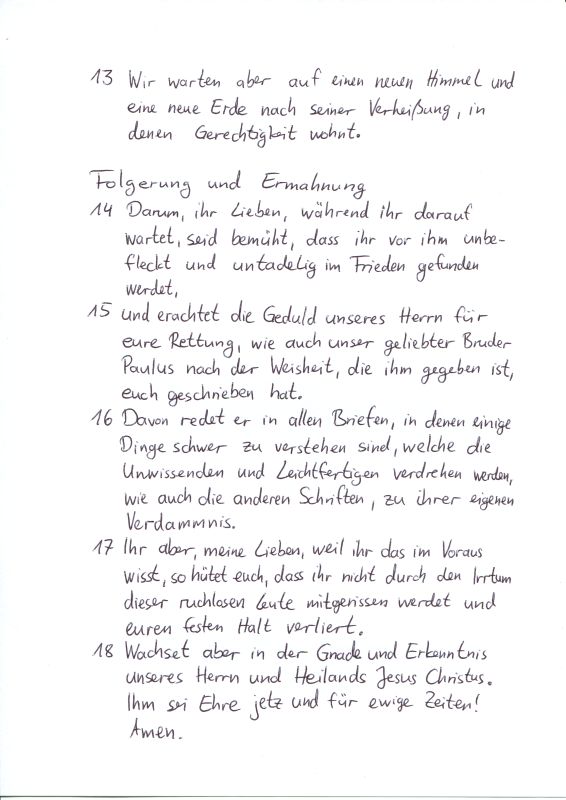 13 Wir warten aber auf einen neuen Himmel und
eine neue Erde nach seiner Verheißung, in
denen Gerechtigkeit wohnt.
Folgerung und Ermahnung
14 Darum, ihr Lieben, während ihr darauf
wartet, seid bemüht, dass ihr vor ihm unbe-
fleckt und untadelig im Frieden gefunden
werdet,
15 und erachtet die Geduld unseres Herrn für
eure Rettung, wie auch unser geliebter Bruder
Paulus nach der Weisheit, die ihm gegeben ist,
euch geschrieben hat.
16 Davon redet er in allen Briefen, in denen einige
Dinge schwer zu verstehen sind, welche die
Unwissenden und Leichtfertigen verdrehen werden,
wie auch die anderen Schriften, zu ihrer eigenen
Verdammnis.
17 Ihr aber, meine Lieben, weil ihr das im Voraus
wisst, so hütet euch, dass ihr nicht durch den Irrtum
dieser ruchlosen Leute mitgerissen werdet und
euren festen Halt verliert.
18 Wachset aber in der Gnade und Erkenntnis
unseres Herrn und Heilands Jesus Christus.
Ihm sei Ehre jetz und für ewige Zeiten!
Amen.